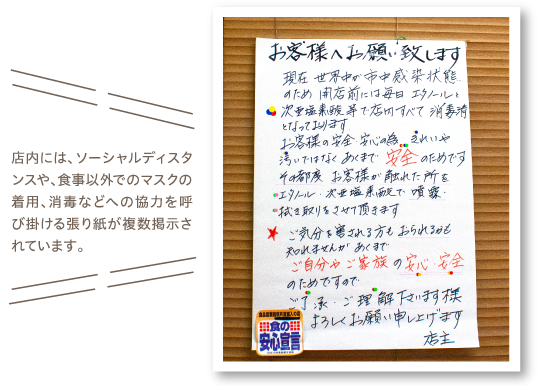 店内には、ソーシャルディスタ
ンスや、食事以外でのマスクの
着用、消毒などへの協力を呼
び掛ける張り紙が複数掲示さ
れています。
お客様へお願い致します
現在 世界中が市中感染状態
のため 開店前には毎日 エタノールと
次亜塩素酸 等で店内すべて 消毒済
となっております
お客様の安全・安心の為、きれいや
汚いではなく あくまで 安全 のためです
その都度 お客様が触れた所を
エタノール・次亜塩素酸で 噴霧・
拭き取りをさせて頂きます
ご気分を害される方もおられるかも
知れませんが あくまで
ご自分や ご家族 の 安心・安全
のためですので
ご了承・ご理解下さいます様
よろしくお願い申し上げます
店主
食の
安心宣言